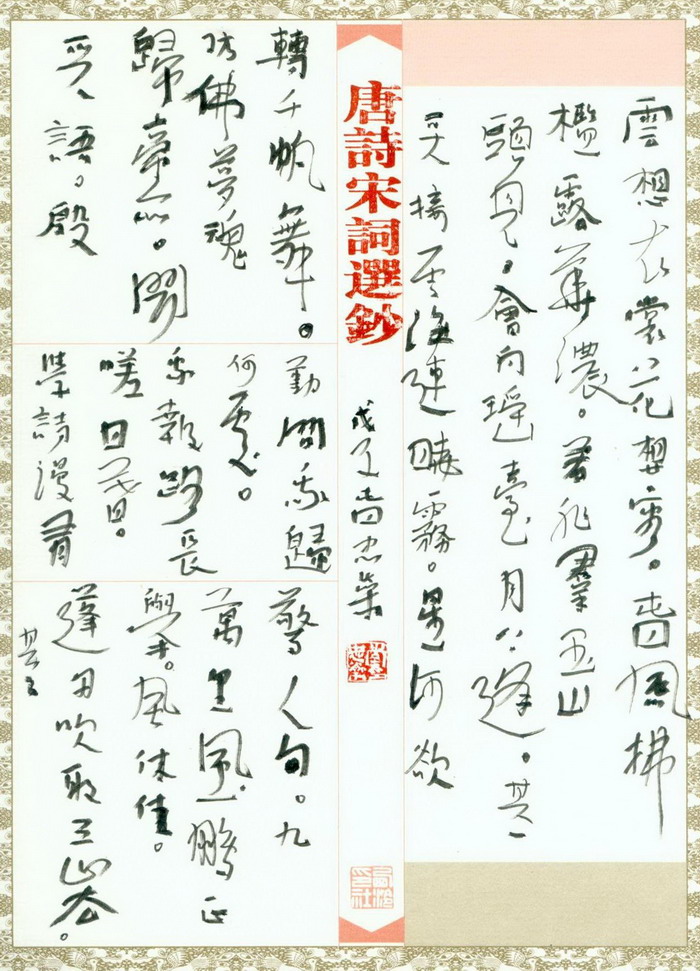 雲想衣裳花想容。春風拂
檻露華濃。若非羣玉山
頭見。會向瑤臺月下逢。其一
天接雲濤連曉霧。星河欲
唐詩宋詞選鈔
戊子春
轉千帆舞。
彷佛夢魂
歸帝所。聞
天語。殷
勤問我歸
何處。
我報路長
嗟日暮。
學詩漫有
驚人句。九
萬里風鵬正
舉。風休住。
蓬舟吹取三山去。
其二